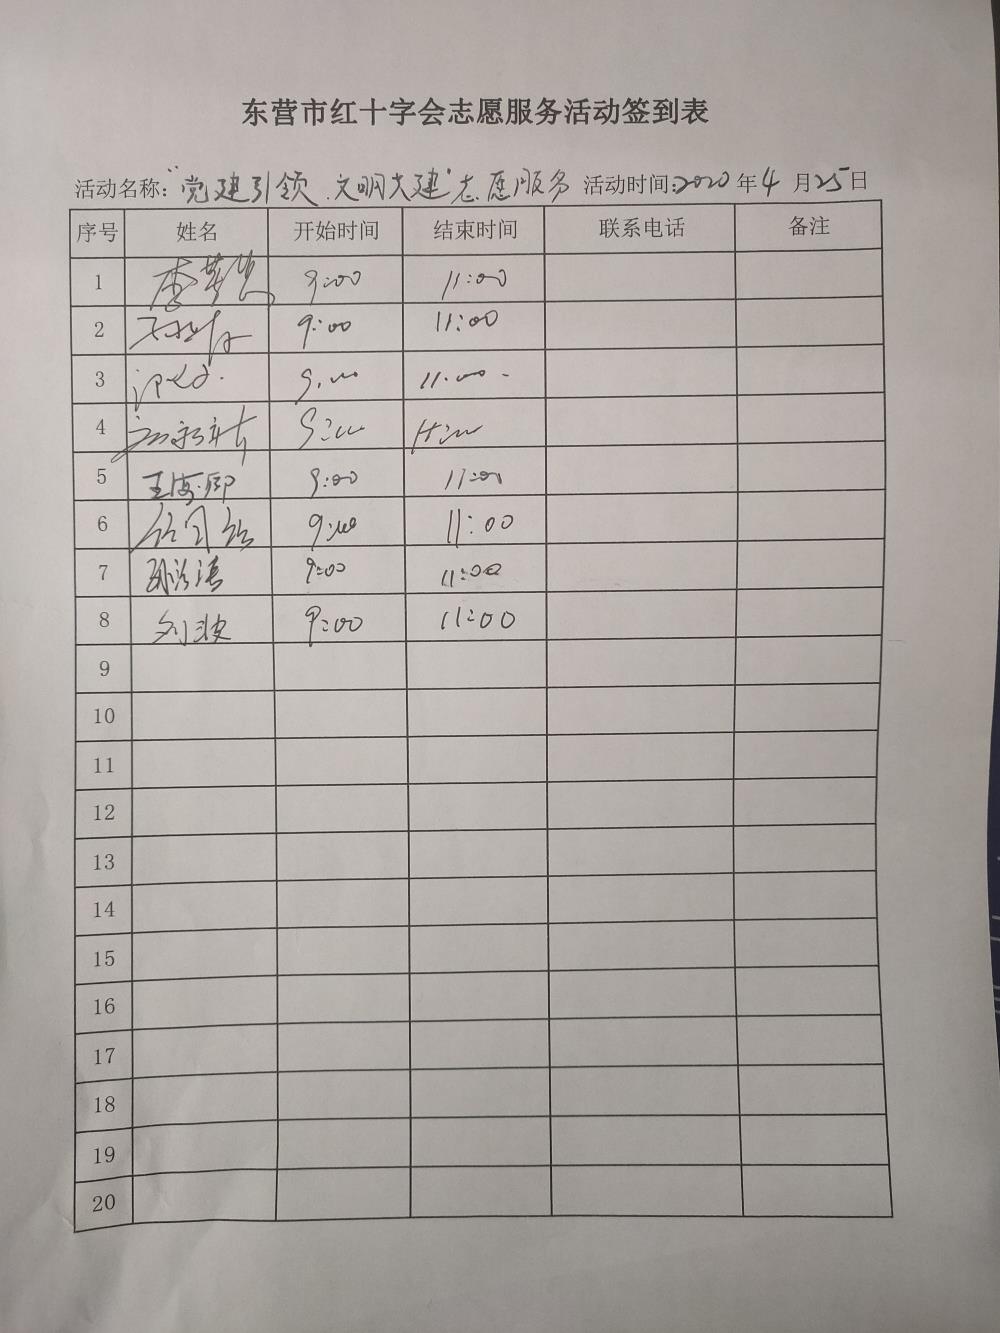 东营市红十字会志愿服务活动签到表
活动名称："党建引领.文明共建"志愿服务 活动时间:2020年4月25日
序号 姓名 开始时间 结束时间 联系电话 备注
1 9:00 11:00
2 9:00 11:00
3 9:00 11:00
4 9:00 11:00
5 9:00 11:00
6 9:00 11:00
7 9:00 11:00
8 刘波 9:00 11:00
9
10
11
12
13
14
15
16
17
18
19
20